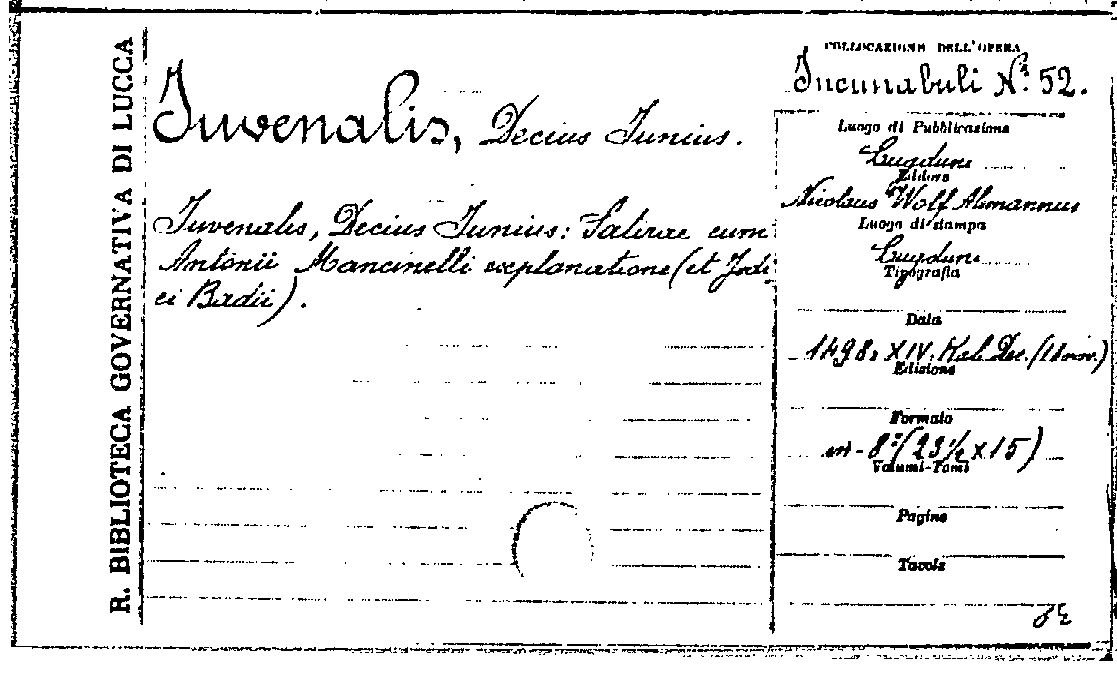 R. BIBLIOTECA GOVERNATIVA DI LUCCA
Juvenalis, Decius Junius.
Juvenalis, Decius Junius: Satirae cum
Antonii Mancinelli explanatione (et Jodi
ci Badii).
COLLOCAZIONE DELL'OPERA
Incunabuli N.º 52.
Luogo di Pubblicazione
Lugduni
Editore
Nicolaus Wolf Alemannus
Luogo di stampa
Lugduni
Tipografia
Data
1498, XIV. Kal. Dec. (18 nov.)
Edizione
Formato
in-8º (23½ x 15)
Volumi-Tomi
Pagine
Tavole